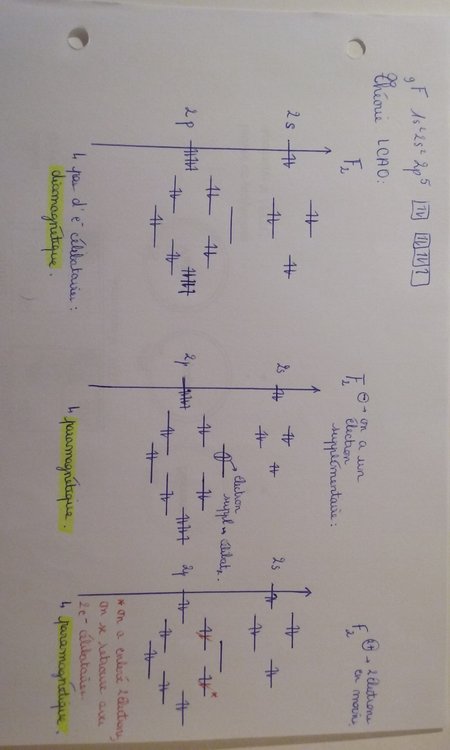 ₉F 1s² 2s² 2p⁵
Théorie LCAO:
F₂
2s
2p
↳ pas d'e⁻ célibataire :
diamagnétique.
F₂⊖ → on a un
électron
supplémentaire :
2s
2p
électron
suppl → célibat.
↳ paramagnétique.
F₂
en moins
2s
2p
* on a enlevé 2 électrons,
on se retrouve avec
2e⁻ célibataires
↳ paramagnétique.